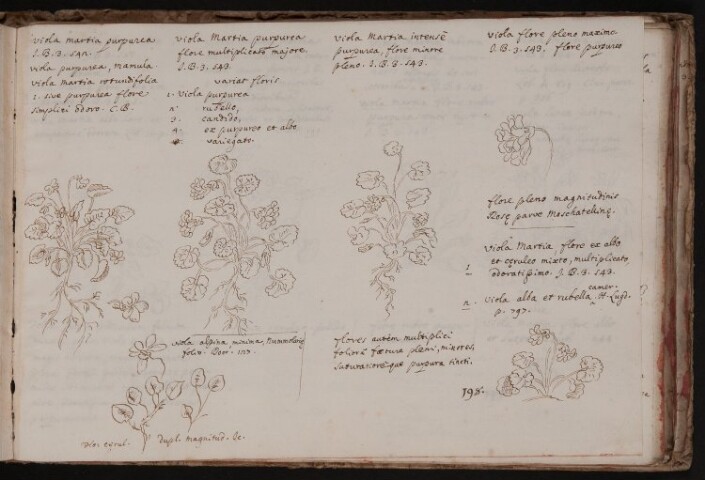 viola martia purpurea
J.B.3. 542.
viola purpurea, namula.
viola martia rotundifolia
1. sive purpurea flore
simplici odoro. C.B.
viola Martia purpurea
flore multiplicato majore
J.B.3. 543.
variat floris.
1. Viola purpurea.
2. rubello,
3. candido,
4. ex purpureo et albo
variegato.
viola Martia intensè
purpurea, flore minore
pleno. J.B.3. 543.
viola flore pleno maximo
J.B.3. 543. flore purpureo
flore pleno magnitudinis
Rosę parvę Moschatellinę.
Viola Martia flore ex albo
et cęruleo mixto, multiplicato
1. odoratissimo. J.B.3. 543.
camer.
2. viola alba et rubella H. Lugd.
p. 797.
viola alpina minima, Nummularię
folio.
flores autem multiplici
foliorū pleni, minores,
saturatioreque purpura tincti.
198.
vio. cęrul. dupl. magnitud.